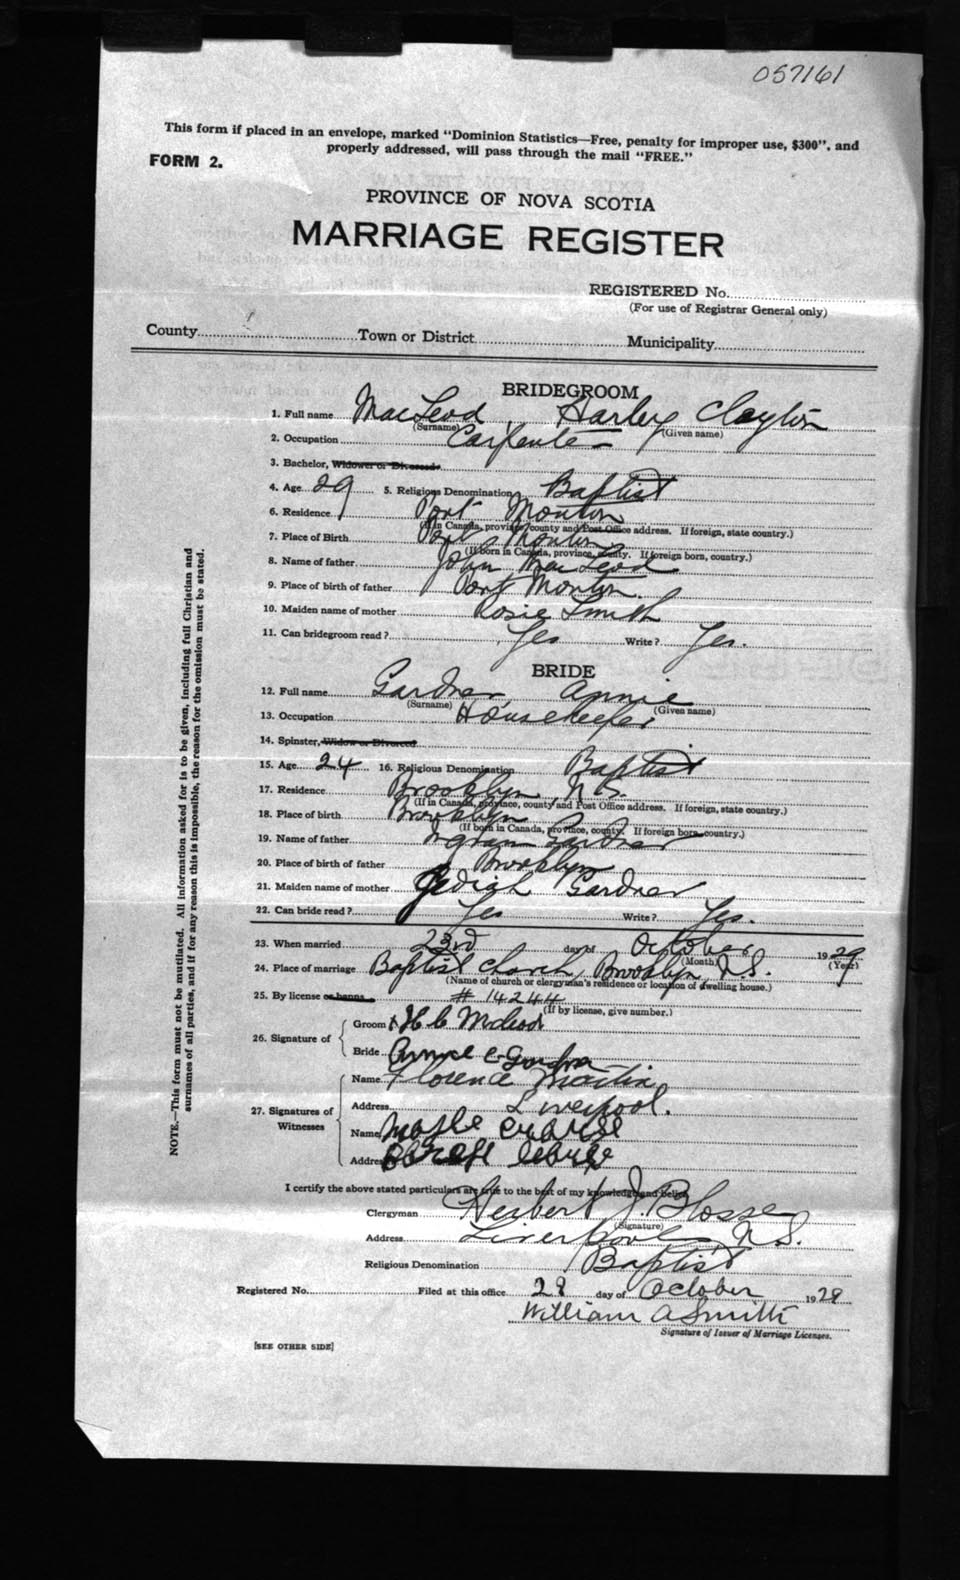 057161
This form if placed in an envelope, marked "Dominion Statistics—Free, penalty for improper use, $300", and
properly addressed, will pass through the mail "FREE."
FORM 2.
PROVINCE OF NOVA SCOTIA
MARRIAGE REGISTER
REGISTERED No.
(For use of Registrar General only)
County Town or District Municipality
BRIDEGROOM
1. Full name MacLeod Harley Clayton
(Surname) (Given name)
2. Occupation Carpenter
3. Bachelor, Widower or Divorced
4. Age 29 5. Religious Denomination Baptist
6. Residence Port Mouton
(If in Canada, province, county and Post Office address. If foreign, state country.)
7. Place of Birth Port Mouton
(If born in Canada, province, county. If foreign born, country.)
8. Name of father John MacLeod
9. Place of birth of father Port Mouton
10. Maiden name of mother Rosie Smith
11. Can bridegroom read? Yes Write? Yes.
BRIDE
12. Full name Gardner Annie
(Surname) (Given name)
13. Occupation Housekeeper
14. Spinster, Widow or Divorced
15. Age 24 16. Religious Denomination Baptist
17. Residence Brooklyn, N.S.
(If in Canada, province, county and Post Office address. If foreign, state country.)
18. Place of birth Brooklyn
(If born in Canada, province, county. If foreign born, country.)
19. Name of father Ingram Gardner
20. Place of birth of father Brooklyn
21. Maiden name of mother Gardner
22. Can bride read? Yes Write? Yes.
23. When married 23rd day of October 1929
(Month) (Year)
24. Place of marriage Baptist Church, Brooklyn, N.S.
(Name of church or clergyman's residence or location of dwelling house.)
25. By license or banns # 14244
(If by license, give number.)
26. Signature of
Groom H C McLeod
Bride Annie C Gardner
27. Signatures of Witnesses
Name Florence Martin
Address Liverpool.
Name
Address
I certify the above stated particulars are true to the best of my knowledge and belief.
Clergyman Herbert J. Blosse
(Signature)
Address Liverpool, N.S.
Religious Denomination Baptist
Registered No. Filed at this office 28 day of October 1929
William A Smith
Signature of Issuer of Marriage Licenses.
[SEE OTHER SIDE]
NOTE.—This form must not be mutilated. All information asked for is to be given, including full Christian and
surnames of all parties, and if for any reason this is impossible, the reason for the omission must be stated.